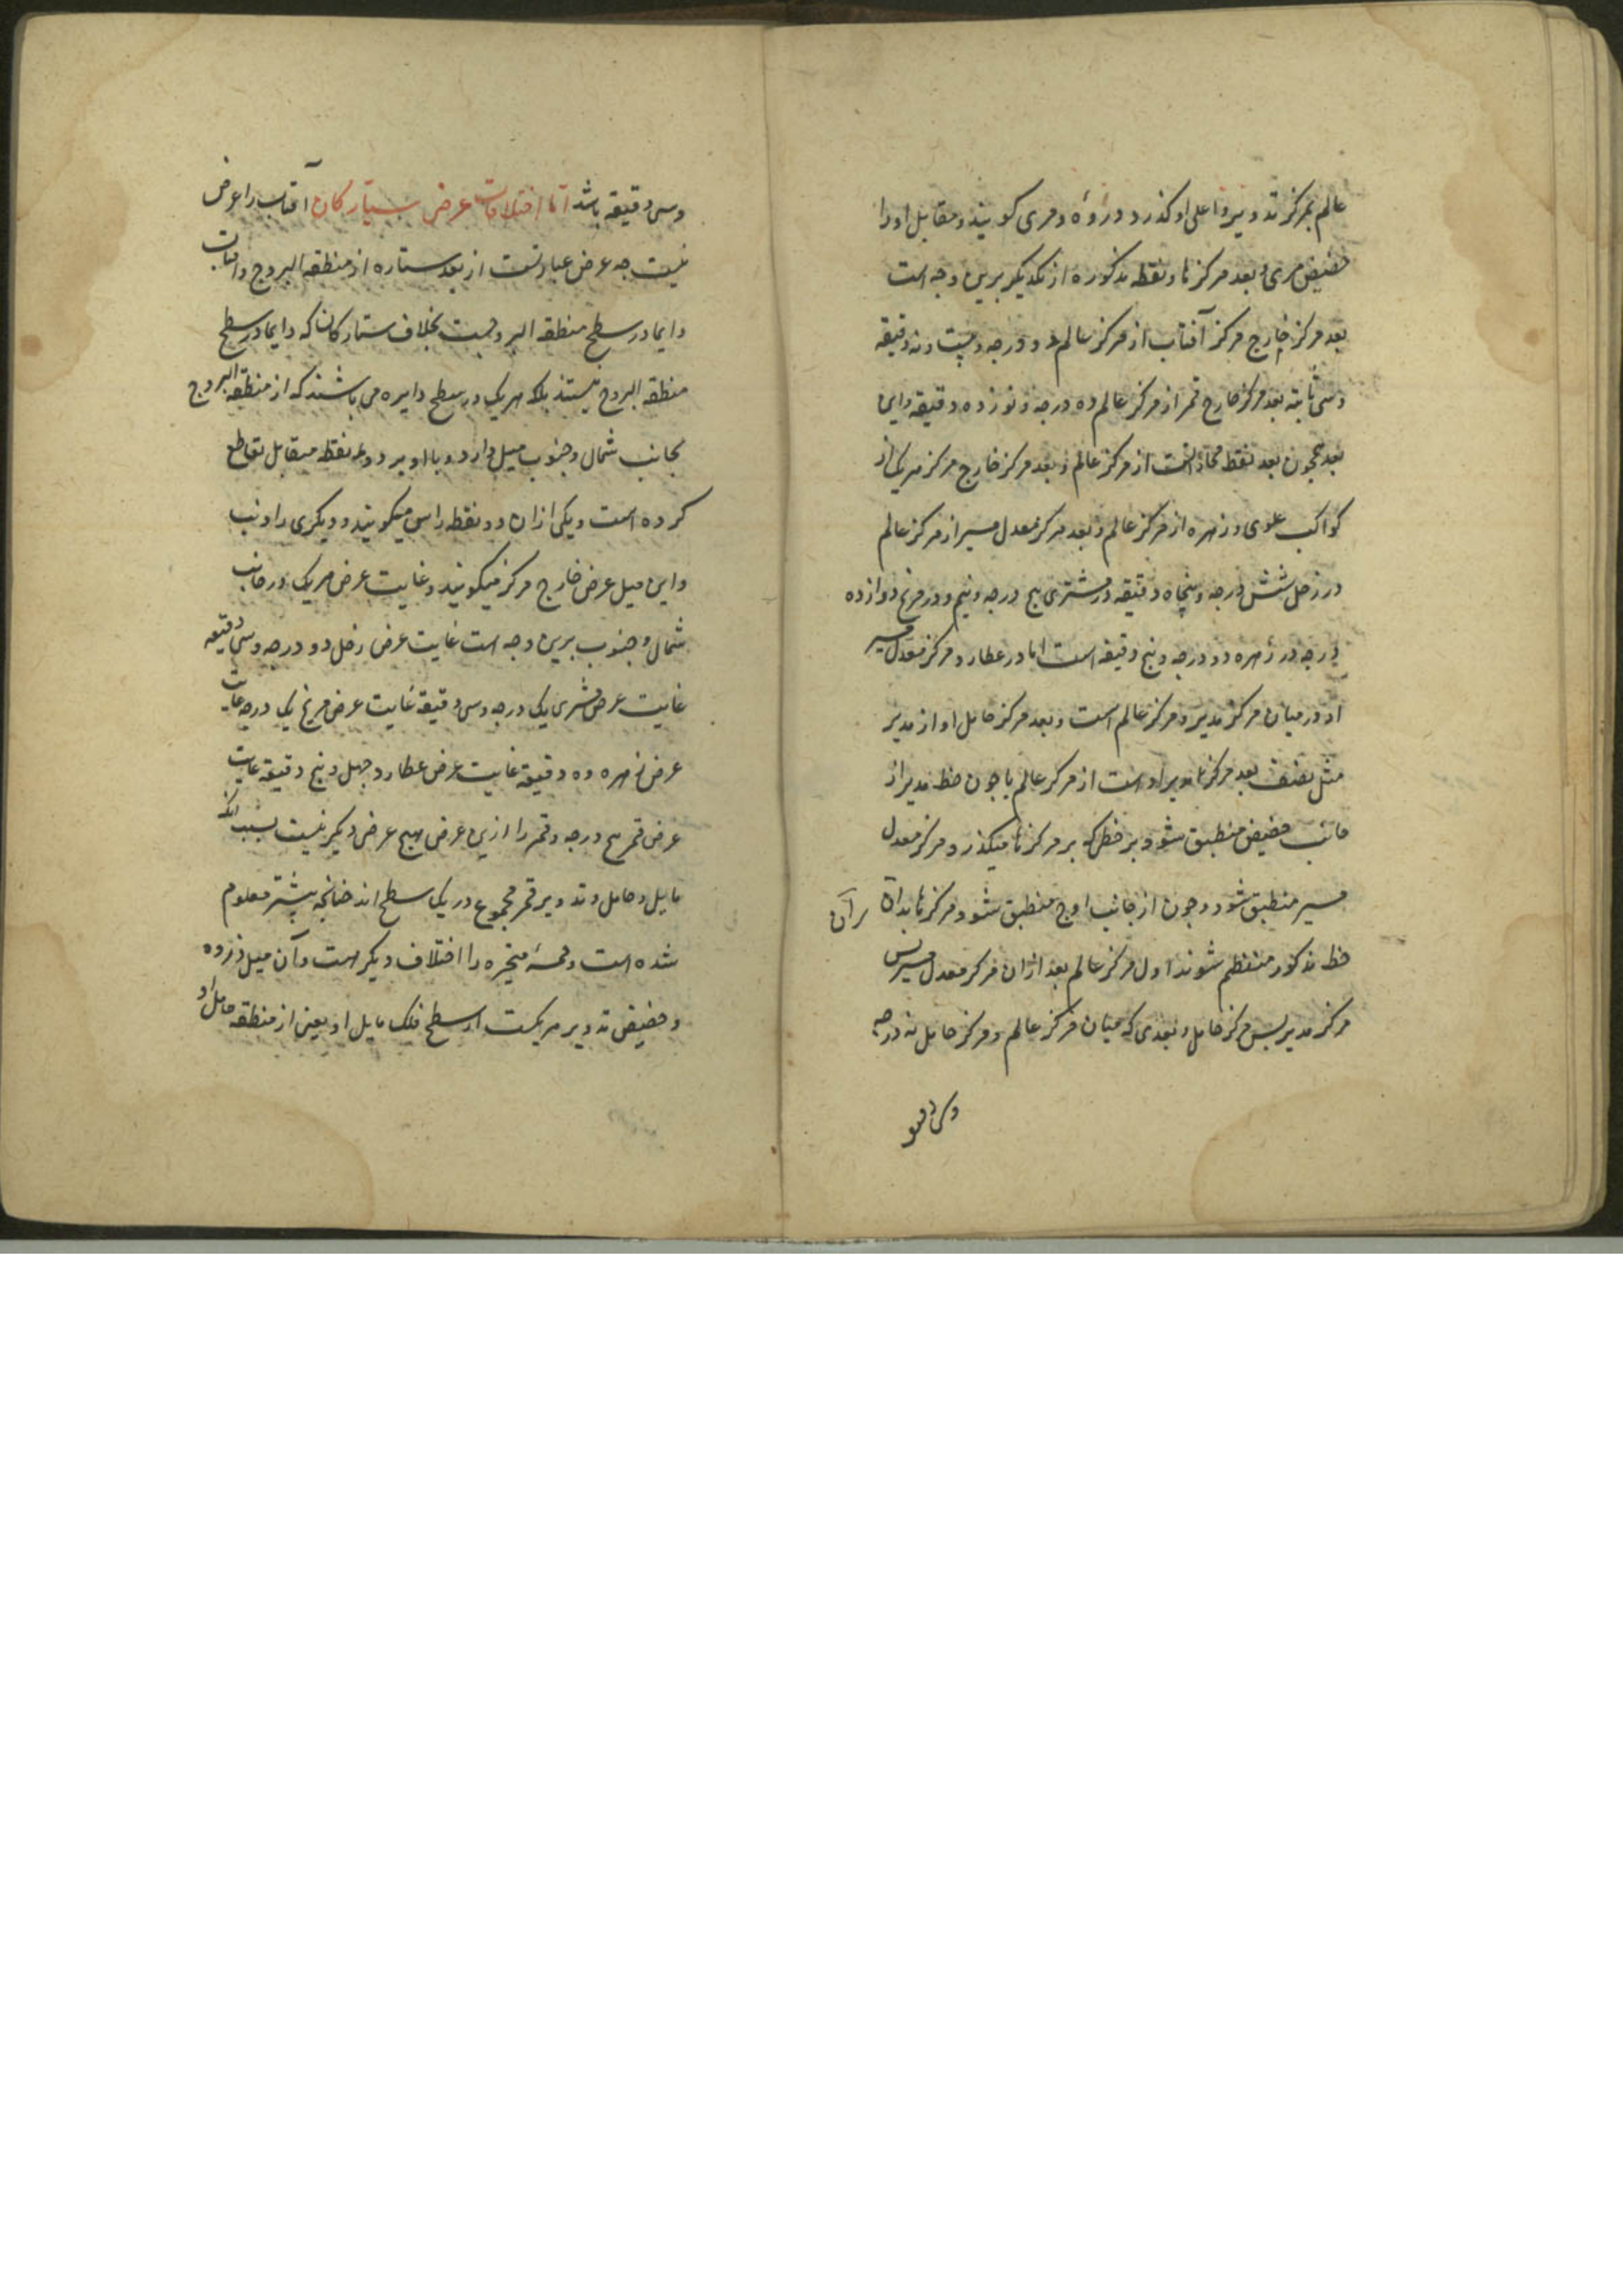 عالم بمرکز تدویر و اعلی او کذرد و ذروهٔ مری کویند و مقابل او را
حضیض مری و بعد مرکزها و نقطه مذکوره از یکدیکر برین وجه است
بعد مرکز خارج مرکز آفتاب از مرکز عالم دو درجه و بیست و نه دقیقه
و سی ثانیه بعد مرکز خارج قمر از مرکز عالم ده درجه و نوزده دقیقه و این
بعد همچون بعد نقطه محاذاتست از مرکز عالم و بعد مرکز خارج مرکز هریک از
کواکب علوی و زهره از مرکز عالم و بعد مرکز معدل مسیر از مرکز عالم
در زحل شش درجه و پنجاه دقیقه و در مشتری پنج درجه و نیم و در مریخ دوازده
درجه در زهره دو درجه و پنج دقیقه است اما در عطارد مرکز معدل مسیر
او در میان مرکز مدیر و مرکز عالم است و بعد مرکز حامل او از مدیر
مثل نصف بعد مرکز مدیر اوست از مرکز عالم با چون خط مدیر از
جانب حضیض منطبق شود بر خطی که بر مرکزها میکذرد مرکز معدل
مسیر منطبق شود و چون از جانب اوج منطبق شود مرکزها بدان / بر آن
خط مذکور منتظم شوند اول مرکز عالم بعد از ان مرکز معدل مسیر پس
مرکز مدیر پس مرکز حامل و بعدی که میان مرکز عالم و مرکز حامل نه درجه
وسی دقیقه
وسی دقیقه باشد اما اختلافات عرض سیارکان آفتاب را عرض
نیست چه عرض عبارتست از بعد ستاره از منطقه البروج و آفتاب
دایما در سطح منطقه البروجست بخلاف ستارکان که دایما در سطح
منطقه البروج نیستند بلکه هریک در سطح دایره می باشند که از منطقه البروج
بجانب شمال و جنوب میل دارد و با او بر دو نقطه متقابل تقاطع
کرده است و یکی از ان دو نقطه راس میکویند و دیکری را ذنب
و این میل عرض خارج مرکز میکویند و غایت عرض هریک در جانب
شمال و جنوب برین وجه است غایت عرض زحل دو درجه و سی دقیقه
غایت عرض مشتری یک درجه و سی دقیقه غایت عرض مریخ یک درجه غایت
عرض زهره ده دقیقه غایت عرض عطارد چهل و پنج دقیقه غایت
عرض قمر پنج درجه و قمر را ازین عرض هیچ عرض دیکر نیست بسبب آنکه
مایل و حامل و تدویر قمر مجموع در یک سطح اند چنانچه پیشتر معلوم
شده است و خمسهٔ متحیره را اختلاف دیکر هست و آن میل ذروه
و حضیض تدویر هریکست از سطح فلک مایل او یعنی از منطقه حامل او